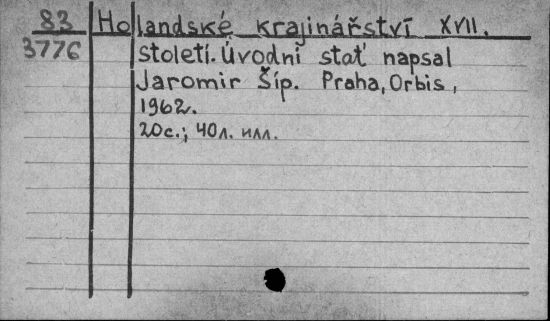 83 Holandské krajinářství XVII.
3776 století. Úvodni stať napsal
Jaromir Šíp. Praha, Orbis,
1962.
20с.; 40л. илл.